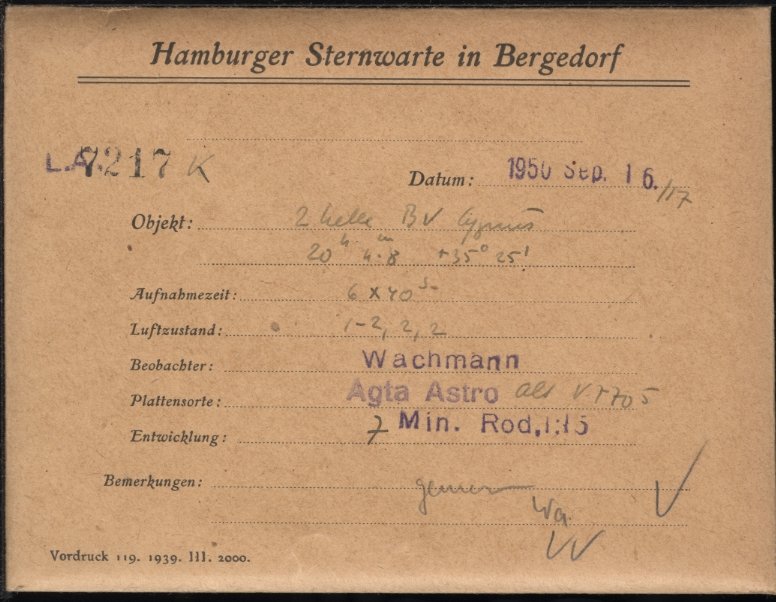 Hamburger Sternwarte in Bergedorf
L.A. 7217 K
Datum: 1950 Sep. 16./17
Objekt: 2 helle BV Cygnus
20ʰ 4.ᵐ8 +35° 25'
Aufnahmezeit: 6 x 40ˢ
Luftzustand: 1-2, 2, 2
Beobachter: Wachmann
Plattensorte: Agfa Astro alt
Entwicklung: 7 Min. Rod. 1:15
Bemerkungen: gemessen
Wa.
Vordruck 119. 1939. III. 2000.